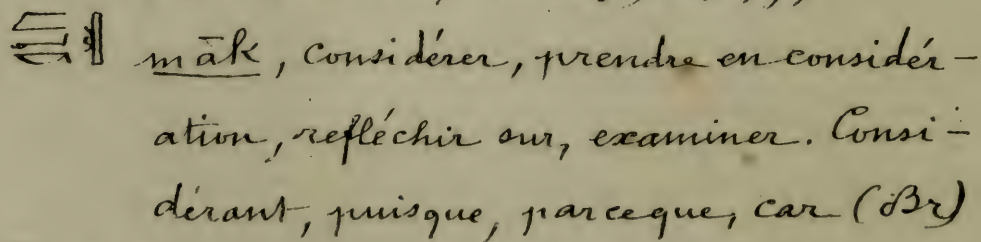 māk, considérer, prendre en considér-
ation, refléchir sur, examiner. Consi-
dérant, puisque, parceque, car (Br)